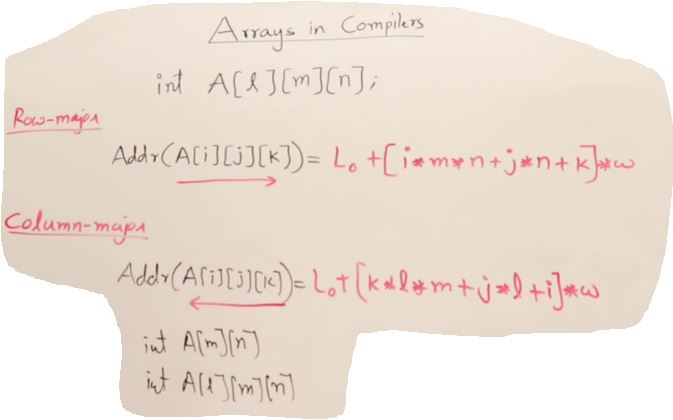 Arrays in Compilers
int A[l][m][n];
Row-major
Addr(A[i][j][k]) = L₀ + [i*m*n+j*n+k]*w
Column-major
Addr(A[i][j][k]) = L₀+[k*l*m+j*l+i]*w
int A[m][n]
int A[l][m][n]